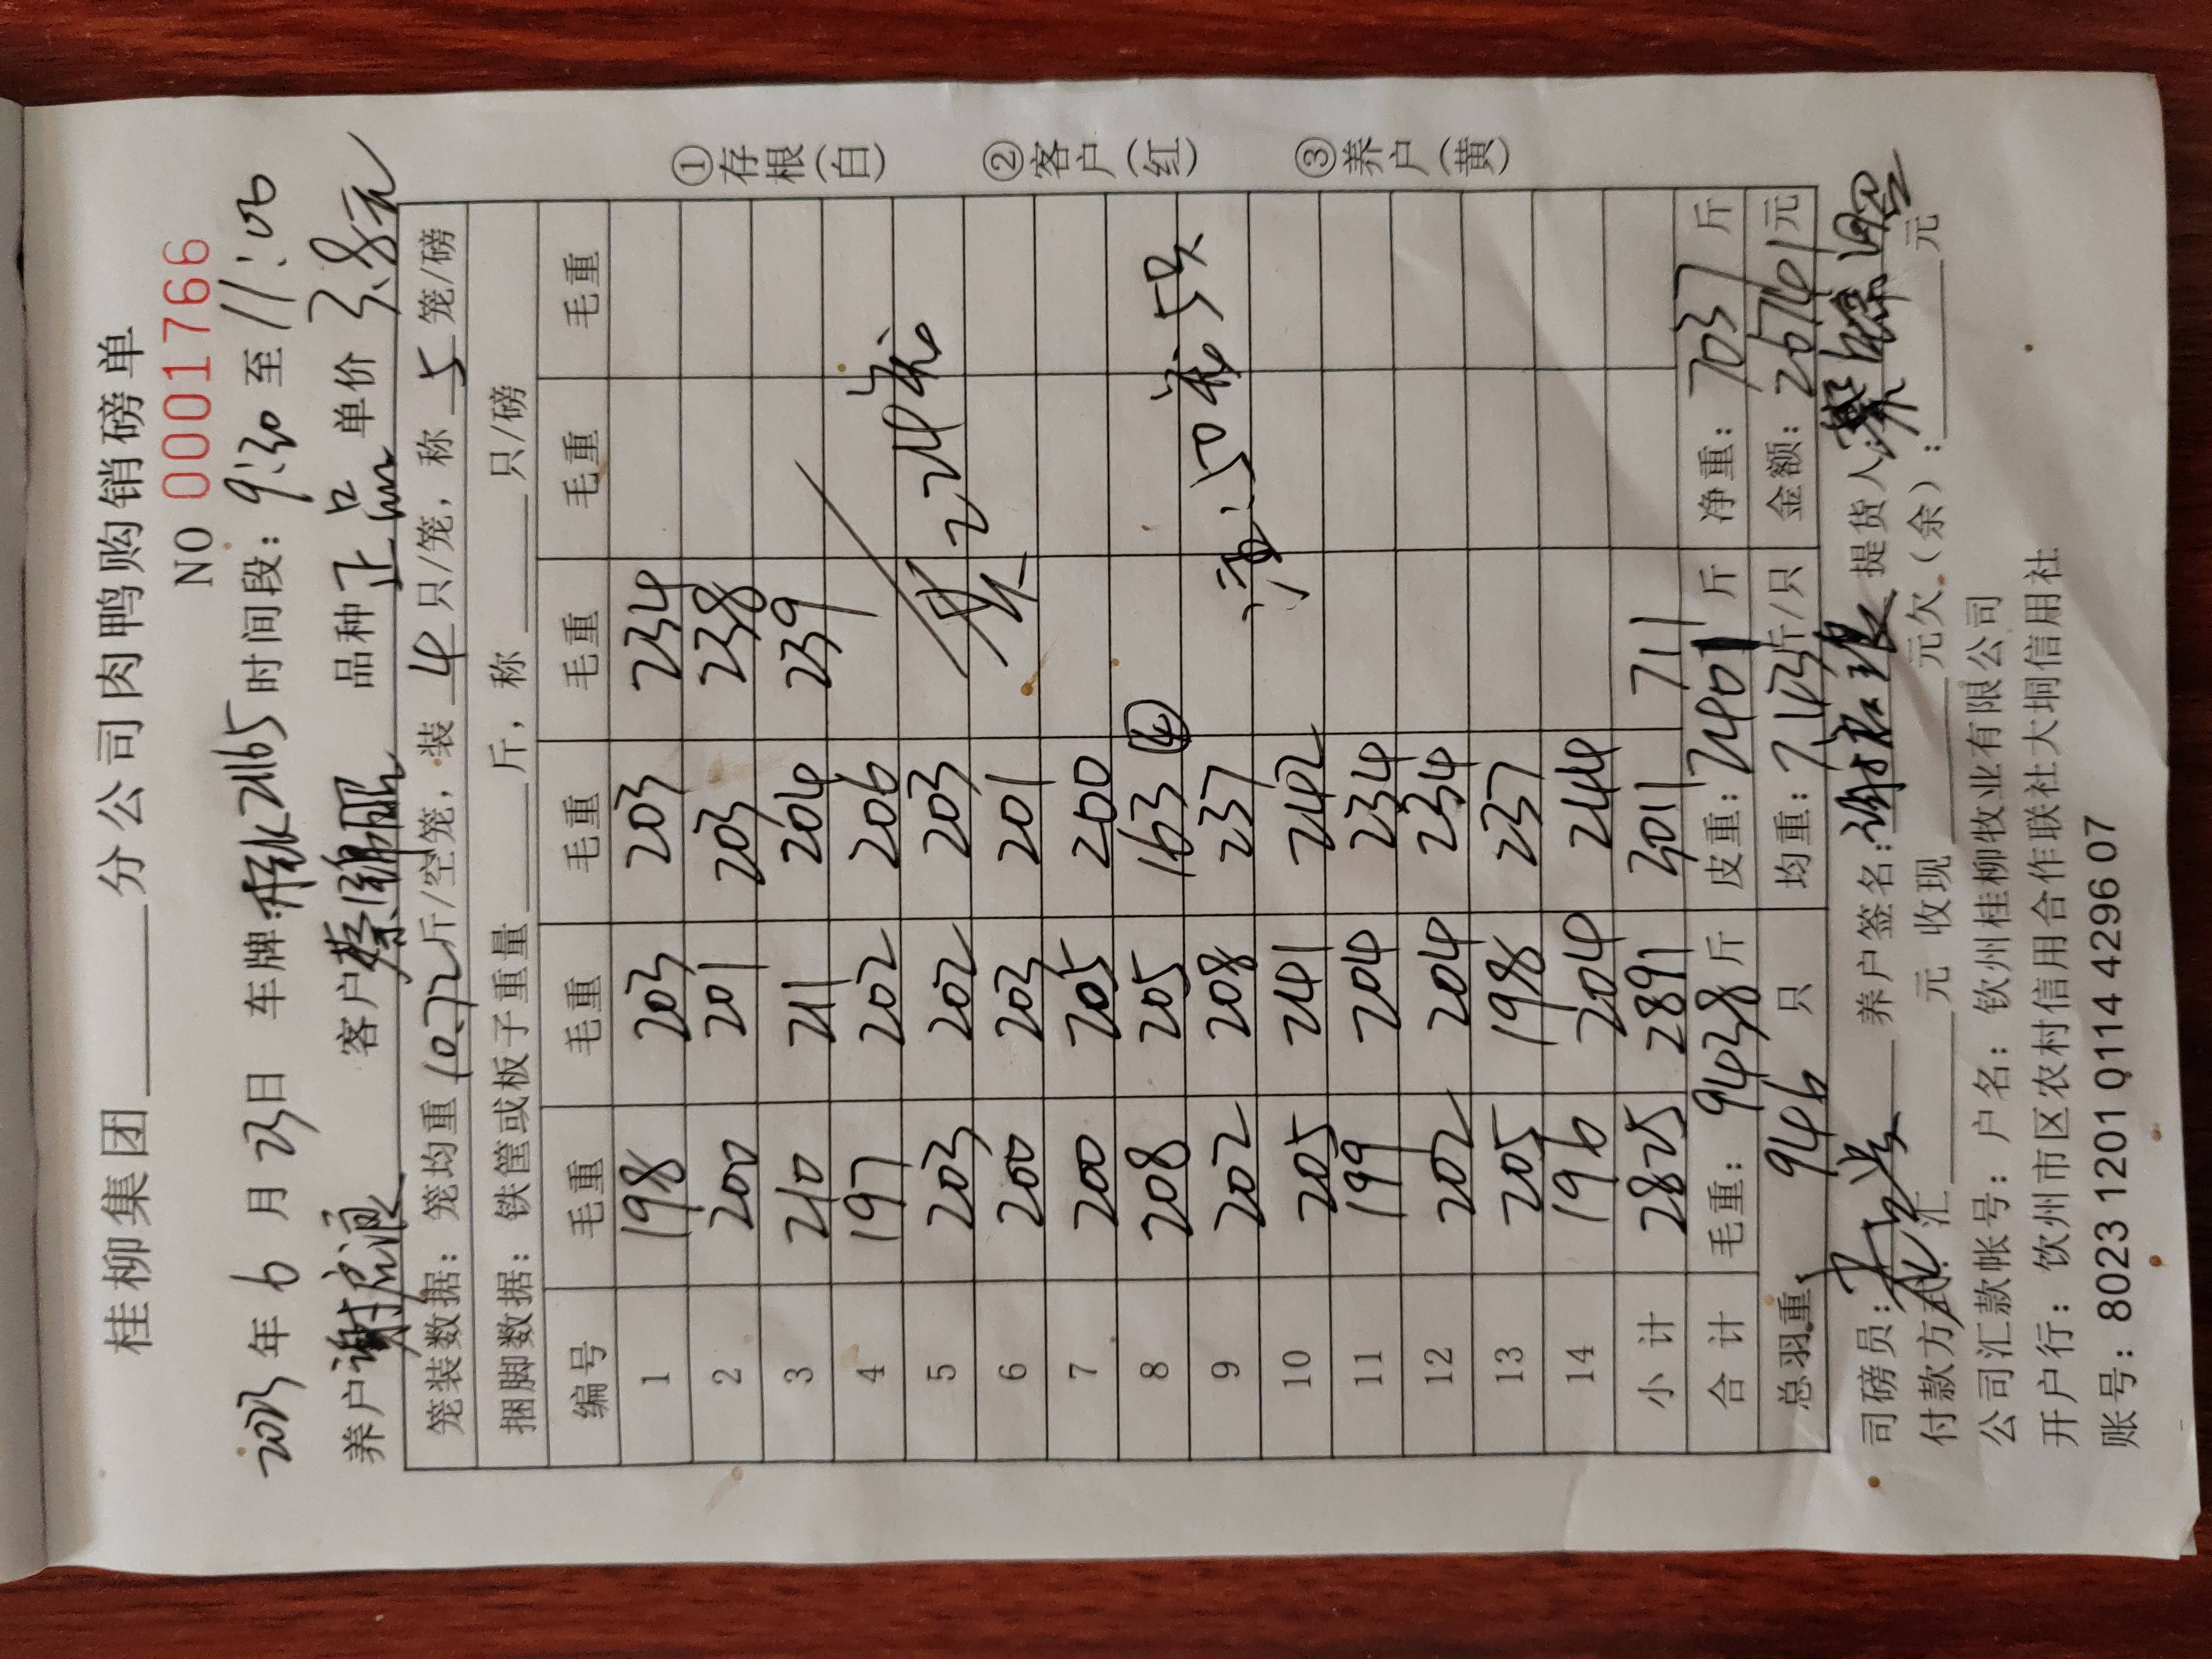 桂柳集团 分公司肉鸭购销磅单
NO 0001766
2023年6月23日 车牌: 2165 时间段: 9:30至11:06
养户谢 客户蔡锦 品种正品 单价3.8元
笼装数据: 笼均重10.72斤/空笼, 装4只/笼, 称5笼/磅
捆脚数据: 铁筐或板子重量 斤, 称 只/磅
编号 毛重 毛重 毛重 毛重 毛重 毛重
1 198 203 203 234
2 200 201 203 238
3 210 211 204 239
4 197 202 206
5 203 202 203
6 200 203 201
7 200 205 200
8 208 205 163 ④
9 202 208 237
10 205 241 242
11 199 204 234
12 202 204 234
13 205 198 237
14 196 204 244
共 224
50 5只
小计 2825 2891 3011 711
合计 毛重: 9438斤 皮重: 2401斤 净重: 7037斤
总羽重 946 只 均重: 7.43斤/只 金额: 26741元
司磅员: 养户签名: 提货人: 蔡锦
付款方式: 汇 元 收现 元欠(余): 元
公司汇款帐号: 户名: 钦州桂柳牧业有限公司
开户行: 钦州市区农村信用合作联社大垌信用社
账号: 8023 1201 0114 4296 07
①存根(白)
②客户(红)
③养户(黄)